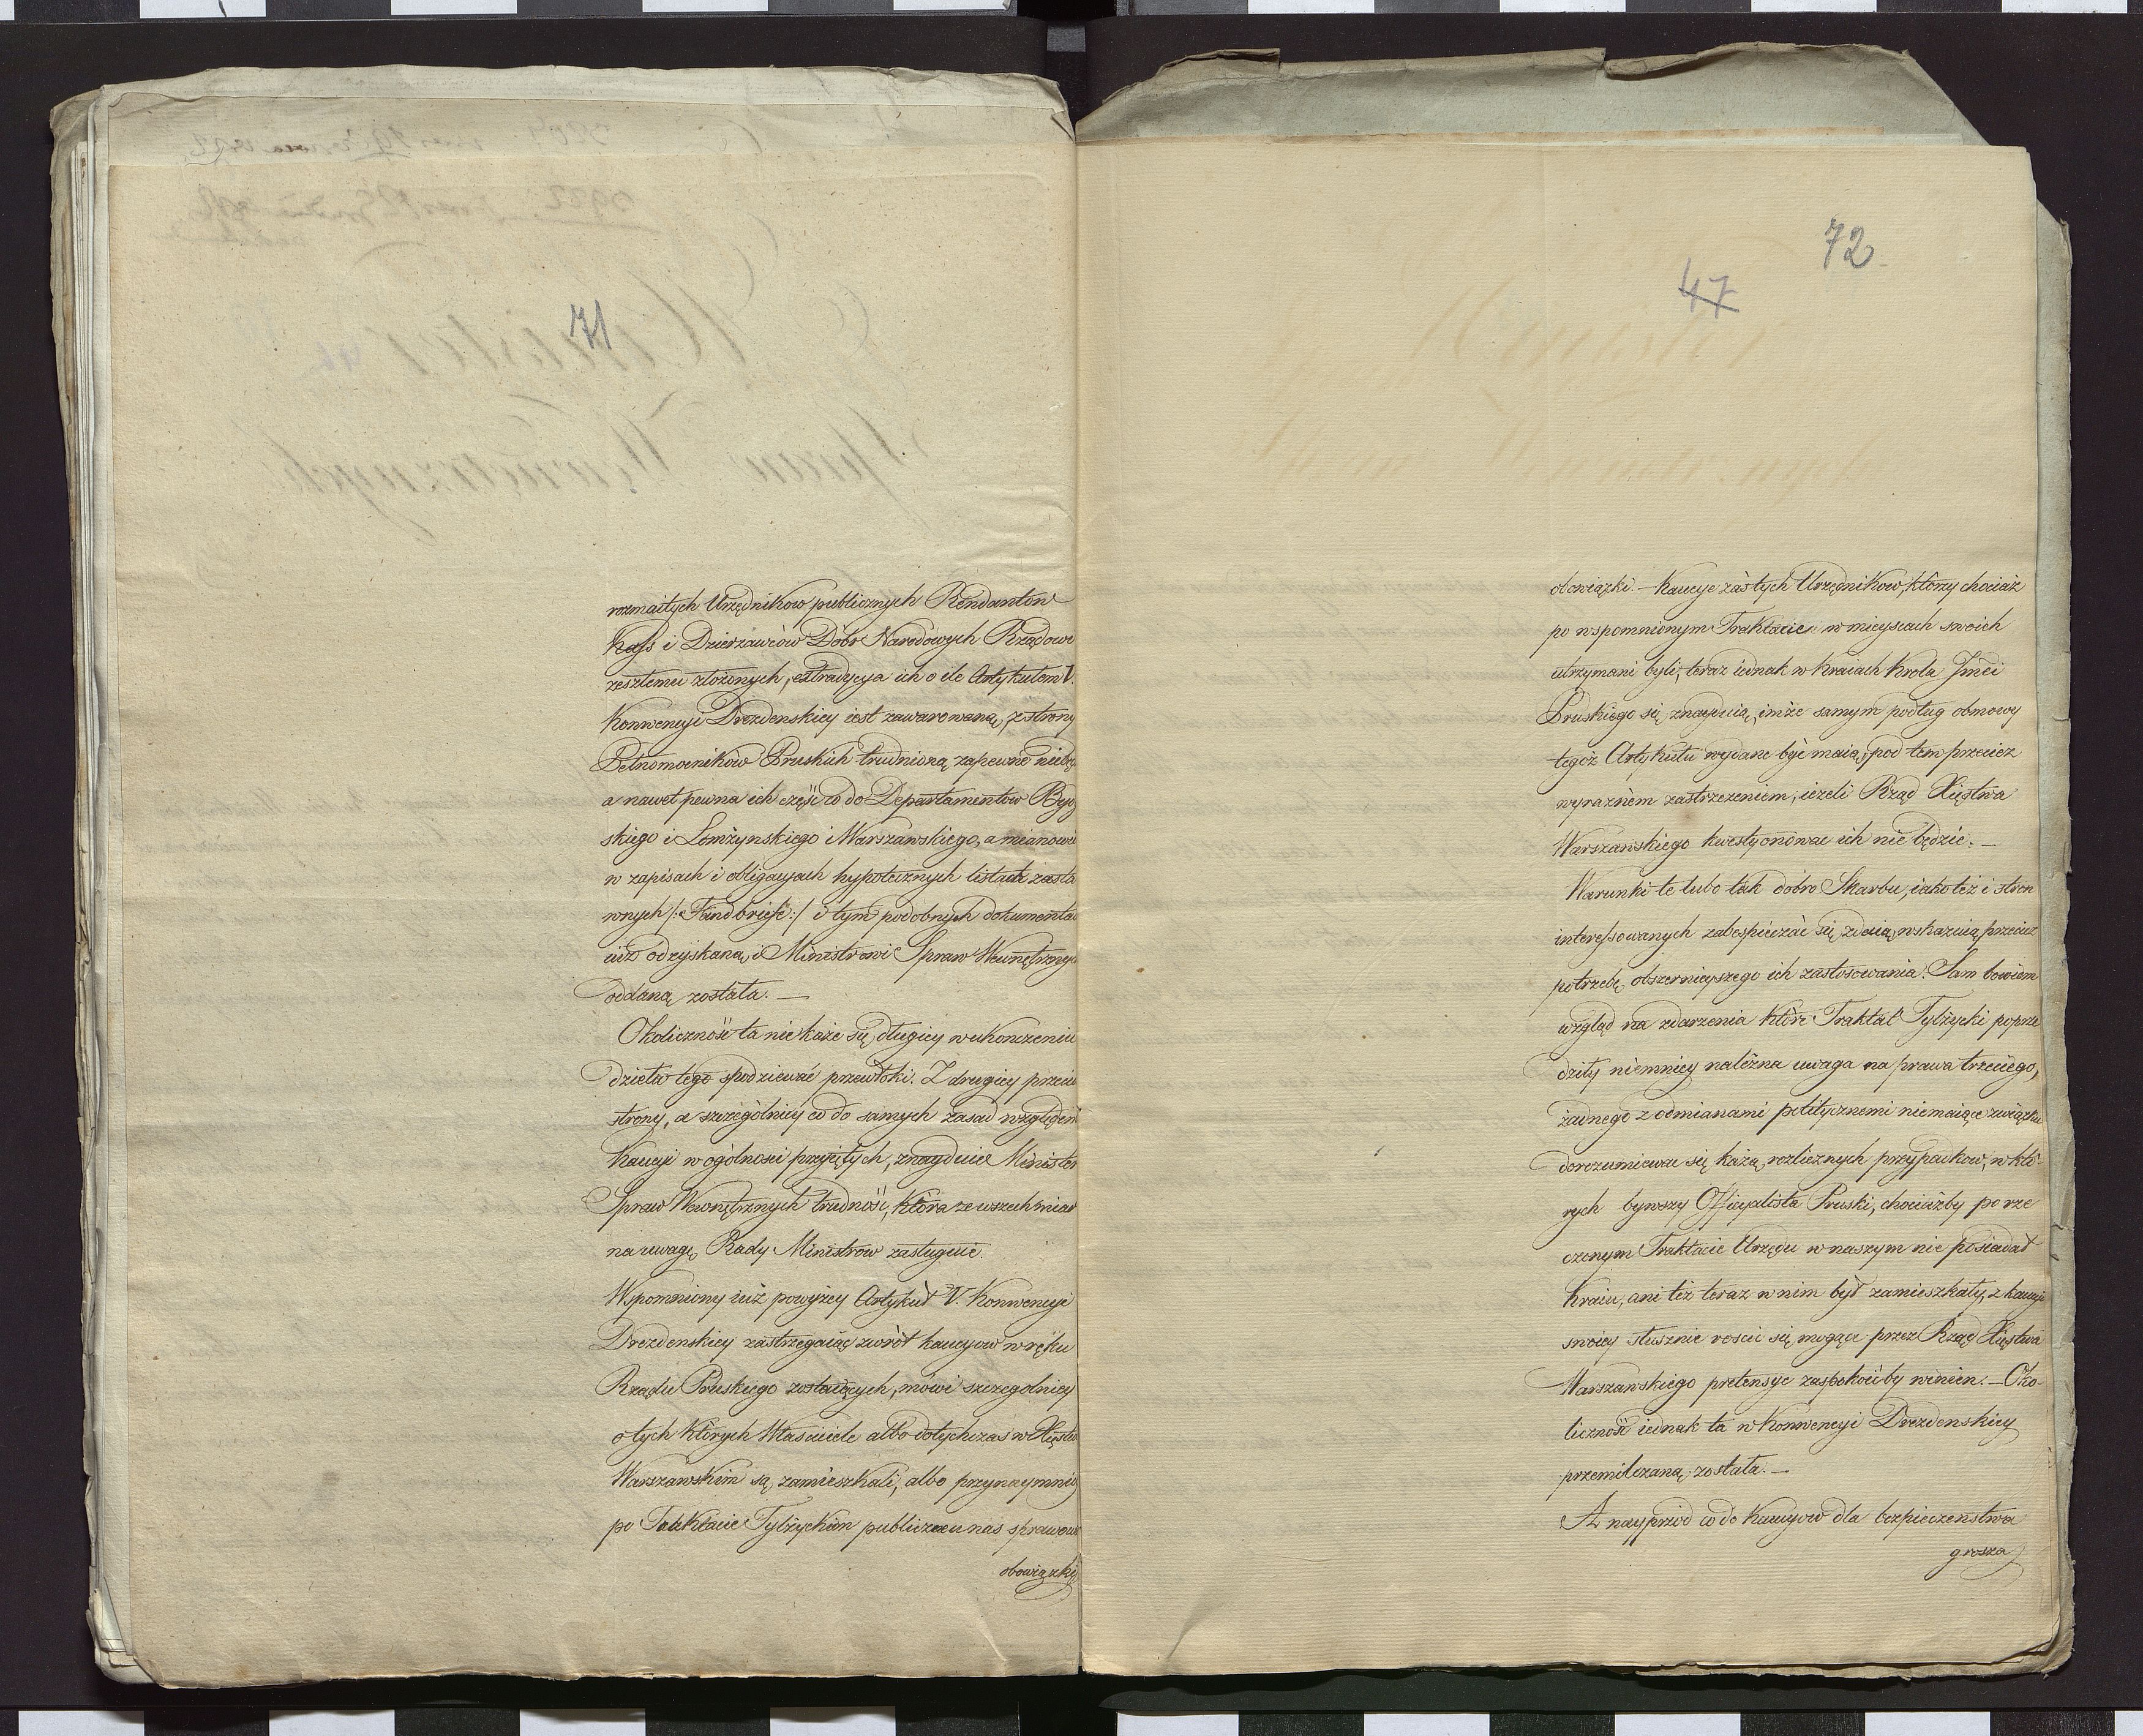 71
rozmaitych Urzędnikow publicznych Rendantow
Kass i Dzierzawców Dóbr Narodowych Rządowi
zeszłemu złożonych, extradycya ich o ile Artykułem V.
Konwencyi Drezdenskiey iest zawarowaną, ze strony
Pełnomocników Pruskich trudnioną zapewne niebę
a nawet pewna ich część co do Departamentow Byd
skiego i Łomżynskiego i Warszawskiego, a mianowi
w zapisach i obligacyach hypotecznych listach zasta
wnych /: Fandbriefe :/ i tym podobnych dokumenta
iuż odzyskaną i Ministrowi Spraw Wewnętrzny
oddaną została. —
Okoliczność ta nie każe się długiey w ukonczeniu
dzieła tego spodziewać przewłoki. Z drugiey przeci
strony, a szczególniey co do samych zasad względem
Kaucyi w ogólnosci przyjętych, znayduie Minister
Spraw Wewnętrznych trudność, która ze wszech miar
na uwagę Rady Ministrow zasługuie.
Wspomniony iuż powyżey Artykuł V. Konwencyi
Drezdenskiey zastrzegaiąc zwrót kaucyow w ręku
Rządu Pruskiego zostaiących, mówi szczegolniey
o tych których Własciciele albo dotychczas w Xięstw
Warszawskim są zamieszkali, albo przynaymniey
po Traktacie Tylżyckim publiczne u nas sprawow
obowiązki
72
47
obowiązki. — Kaucye zaś tych Urzędnikow, którzy chociaż
po wspomnionym Traktacie w mieyscach swoich
utrzymani byli, teraz iednak w Kraiach Krola Jmci
Pruskiego się znayduią, imże samym podług obmowy
tegoż Artykułu wydane być maią, pod tem przeciez
wyraznem zastrzeżeniem, ieżeli Rząd Xięstwa
Warszawskiego kwestyonowac ich nie będzie. —
Warunki te lubo tak dobro Skarbu, iako też i stron
interessowanych zabespieczać się zdaią, wskazuią przecież
potrzebę obszernieyszego ich zastosowania. Sam bowiem
wzgląd na zdarzenia które Traktat Tylżycki poprze
dziły niemniey należna uwaga na prawa trzeciego,
żadnego z odmianami politycznemi niemaiące związku
dorozumiewac się każą, rozlicznych przypadkow, w któ-
rych bywszy Officyalista Pruski, chociażby po rze
czonym Traktacie Urzędu w naszym nie posiadał
Kraiu, ani też teraz w nim był zamieszkały, z kaucyi
swoiey słusznie roscic się mogące przez Rząd Xięstwa
Warszawskiego pretensye zaspokoićby winien. — Oko-
liczność iednak ta w Konwencyi Drezdenskiey
przemilczaną została. —
A nayprzód co do Kaucyow dla bezpieczenstwa
grosza